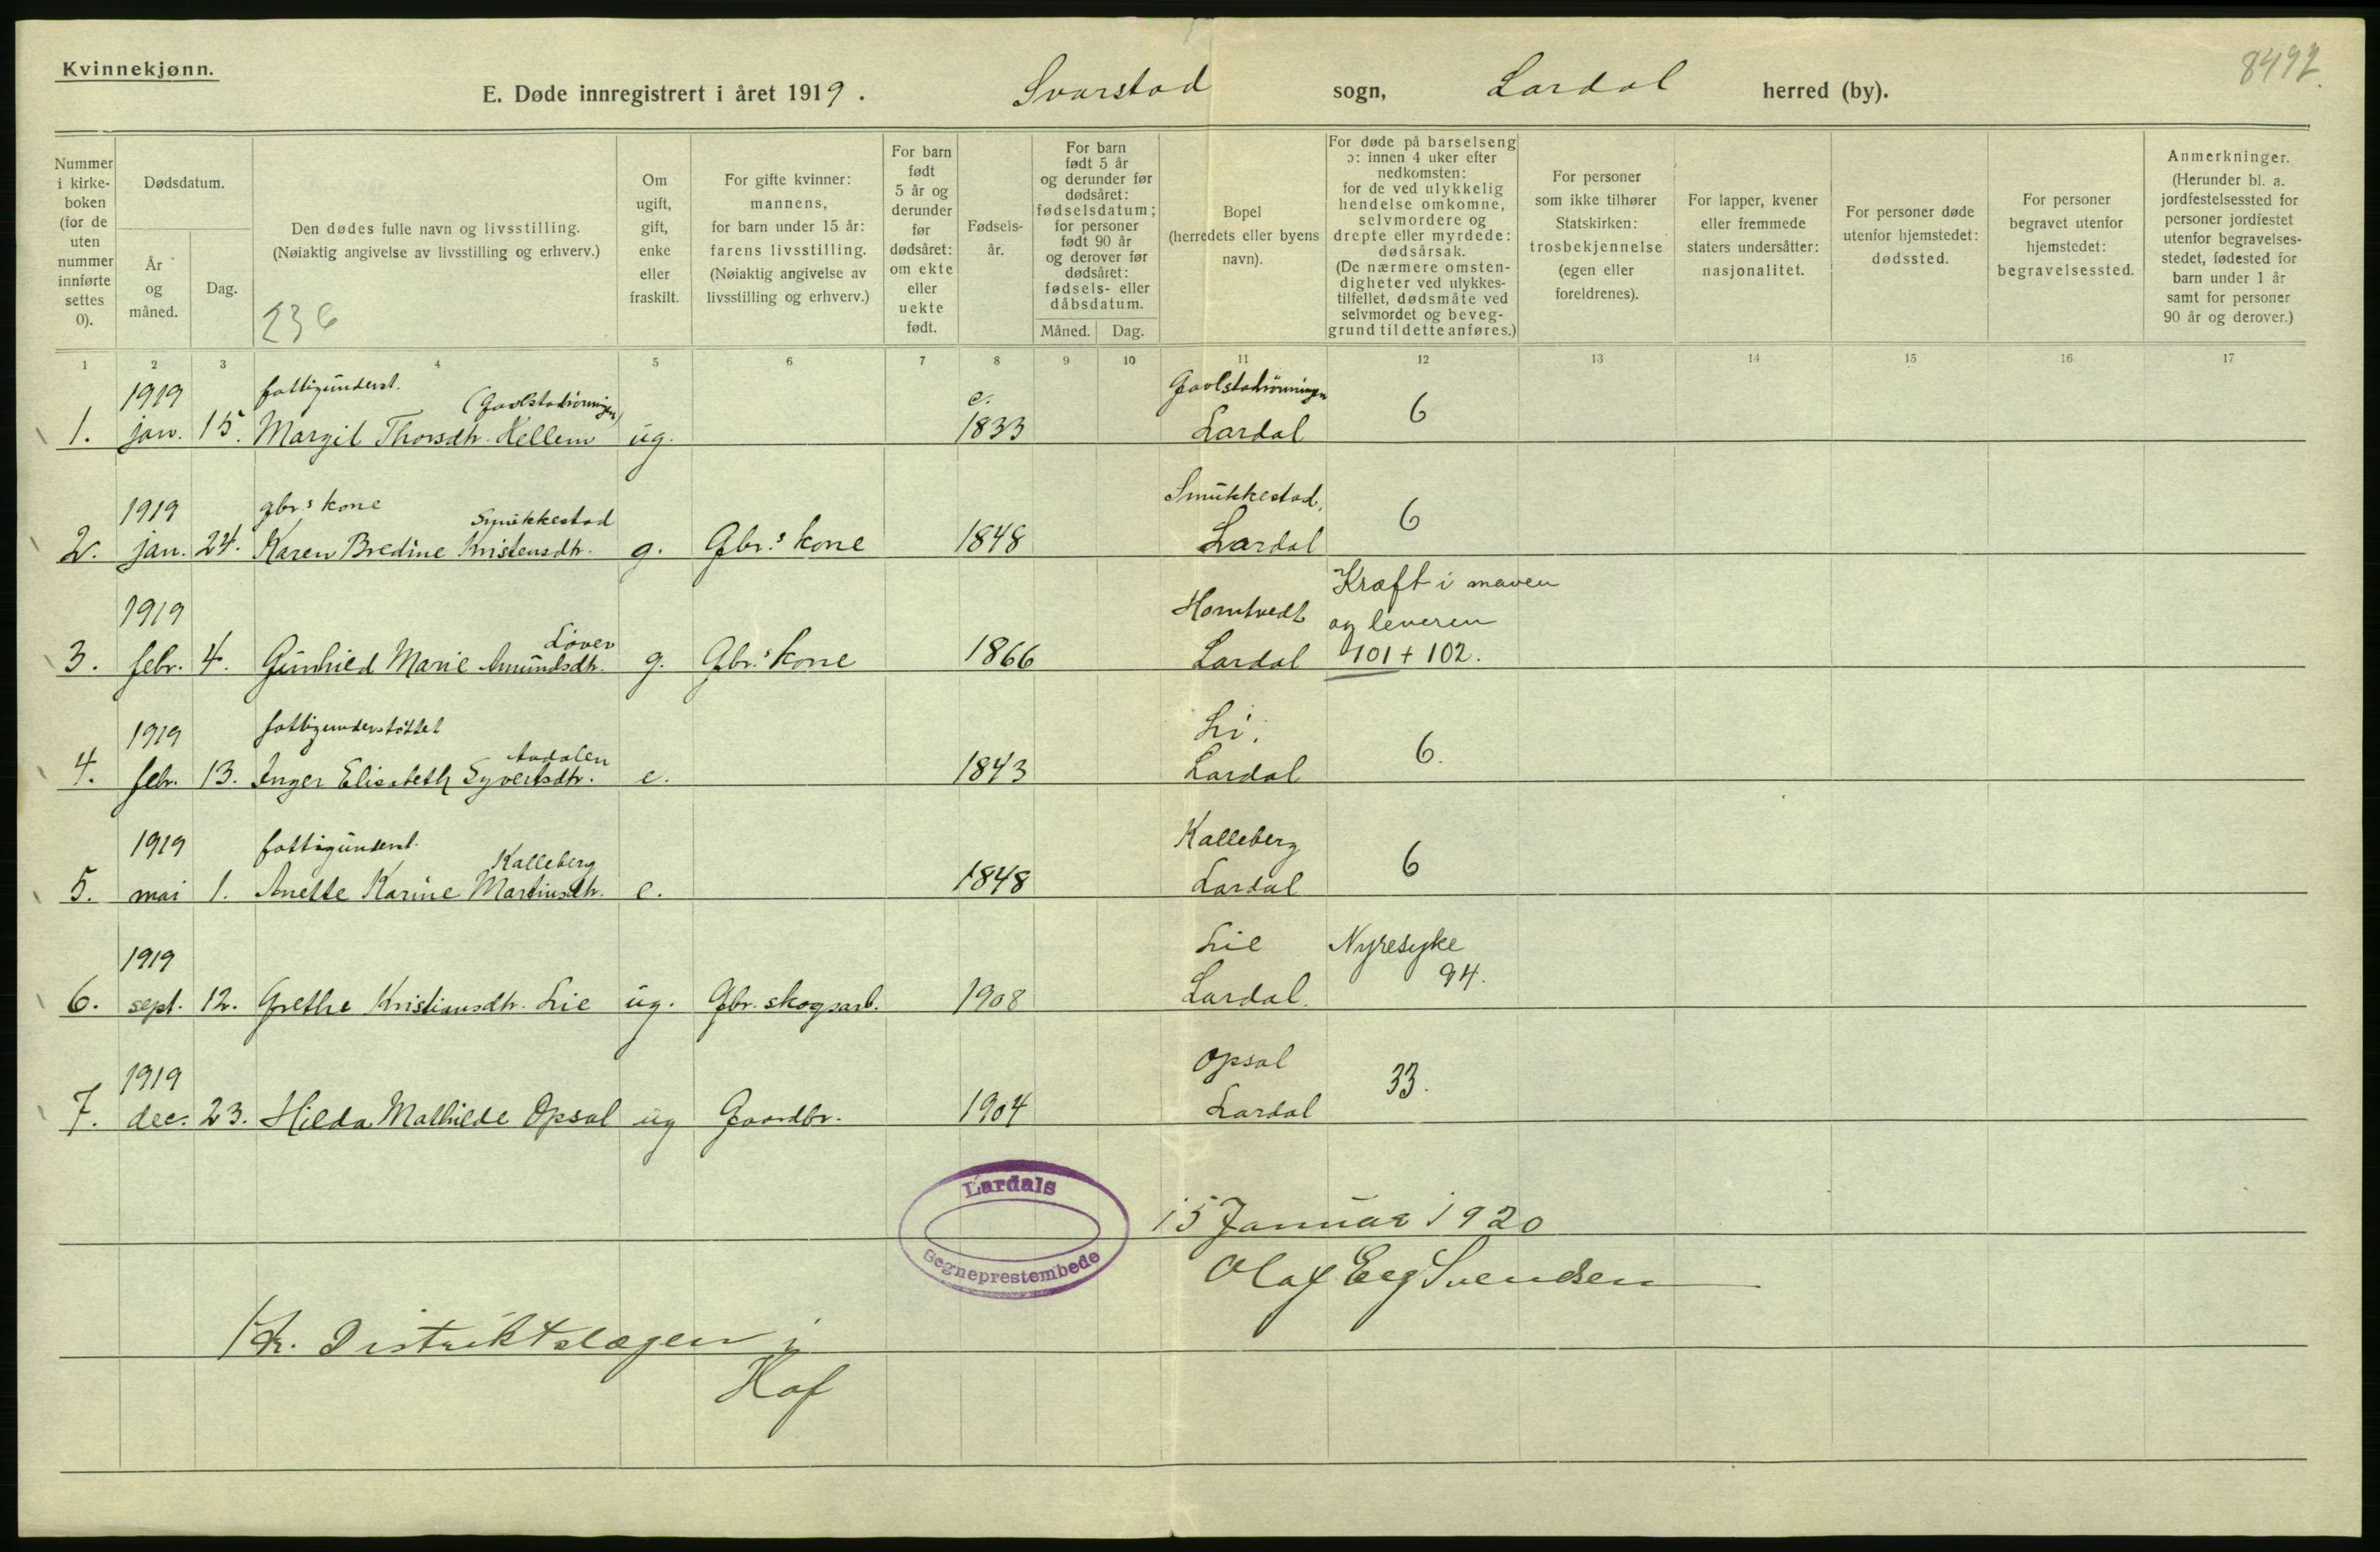 Kvinnekjønn.
8492
E. Døde innregistrert i året 1919. Svarstad sogn, Lardal herred (by).
Nummer i kirke-boken (før de uten nummer innførte settes 0).
Dødsdatum.
År og måned.
Dag.
Den dødes fulle navn og livsstilling.
(Nøiaktig angivelse av livsstilling og erhverv.)
236
Om ugift, gift, enke eller fraskilt.
For gifte kvinner: mannens, for barn under 15 år: farens livsstilling. (Nøiaktig angivelse av livsstilling og erhverv.)
For barn født 5 år og derunder før dødsåret: om ekte eller uekte født.
Fødsels-år.
For barn født 5 år og derunder før dødsåret: fødselsdatum; for personer født 90 år og derover før dødsåret: fødsels- eller dåbsdatum.
Måned. Dag.
Bopel (herredets eller byens navn).
For døde på barselseng ɔ: innen 4 uker efter nedkomsten: for de ved ulykkelig hendelse omkomne, selvmordere og drepte eller myrdede: dødsårsak. (De nærmere omsten-digheter ved ulykkes-tilfellet, dødsmåte ved selvmordet og beveg-grund til dette anføres.)
For personer som ikke tilhører Statskirken: trosbekjennelse (egen eller foreldrenes).
For lapper, kvener eller fremmede staters undersåtter: nasjonalitet.
For personer døde utenfor hjemstedet: dødssted.
For personer begravet utenfor hjemstedet: begravelsessted.
Anmerkninger. (Herunder bl. a. jordfestelsessted for personer jordfestet utenfor begravelses-stedet, fødested for barn under 1 år samt for personer 90 år og derover.)
1 2 3 4 5 6 7 8 9 10 11 12 13 14 15 16 17
1919 fattigunderst. c. Gavlstadrønningen
1. jan. 15. Margit Thorsdtr. Hellem (Gavlstadrønningen) ug. 1833 Lardal 6
1919 gbr.s kone Smukkestad Smukkestad,
2. jan. 24. Karen Bredine Kristensdtr. g. Gbr.s kone 1848 Lardal 6
1919 Løver Horntvedt Kræft i maven og leveren
3. febr. 4. Gunhild Marie Amundsdtr. g. Gbr.s kone 1866 Lardal 101 + 102.
1919 fattigunderstøttet Aadalen Li,
4. febr. 13. Inger Elisabeth Syvertsdtr. e. 1843 Lardal 6.
1919 fattigunderst. Kalleberg Kalleberg
5. mai 1. Anette Karine Martinsdtr. e. 1848 Lardal 6
1919 Lie Nyresyke
6. sept. 12. Grethe Kristiansdtr. Lie ug. Gbr. skogsarb. 1908 Lardal. 94.
1919 Opsal
7. dec. 23. Hilda Mathilde Opsal ug Gaardbr. 1904 Lardal 33.
Lardals
Sogneprestembede
15 Januar 1920
Olaf Eeg Svendsen
Hr. Distriktslægen i
Hof